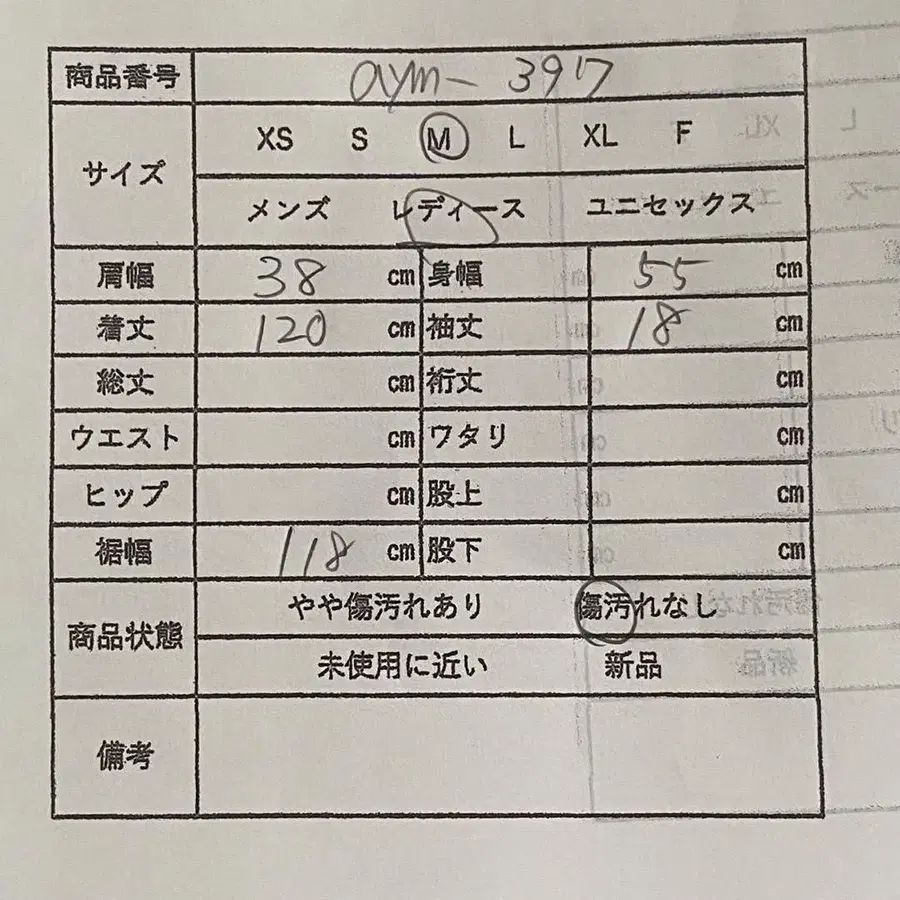 商品番号 aym-3917
サイズ XS S M L XL F
メンズ レディース ユニセックス
肩幅 38 cm 身幅 55 cm
着丈 120 cm 袖丈 18 cm
総丈 cm 裄丈 cm
ウエスト cm ワタリ cm
ヒップ cm 股上 cm
裾幅 118 cm 股下 cm
商品状態 やや傷汚れあり 傷汚れなし
未使用に近い 新品
備考